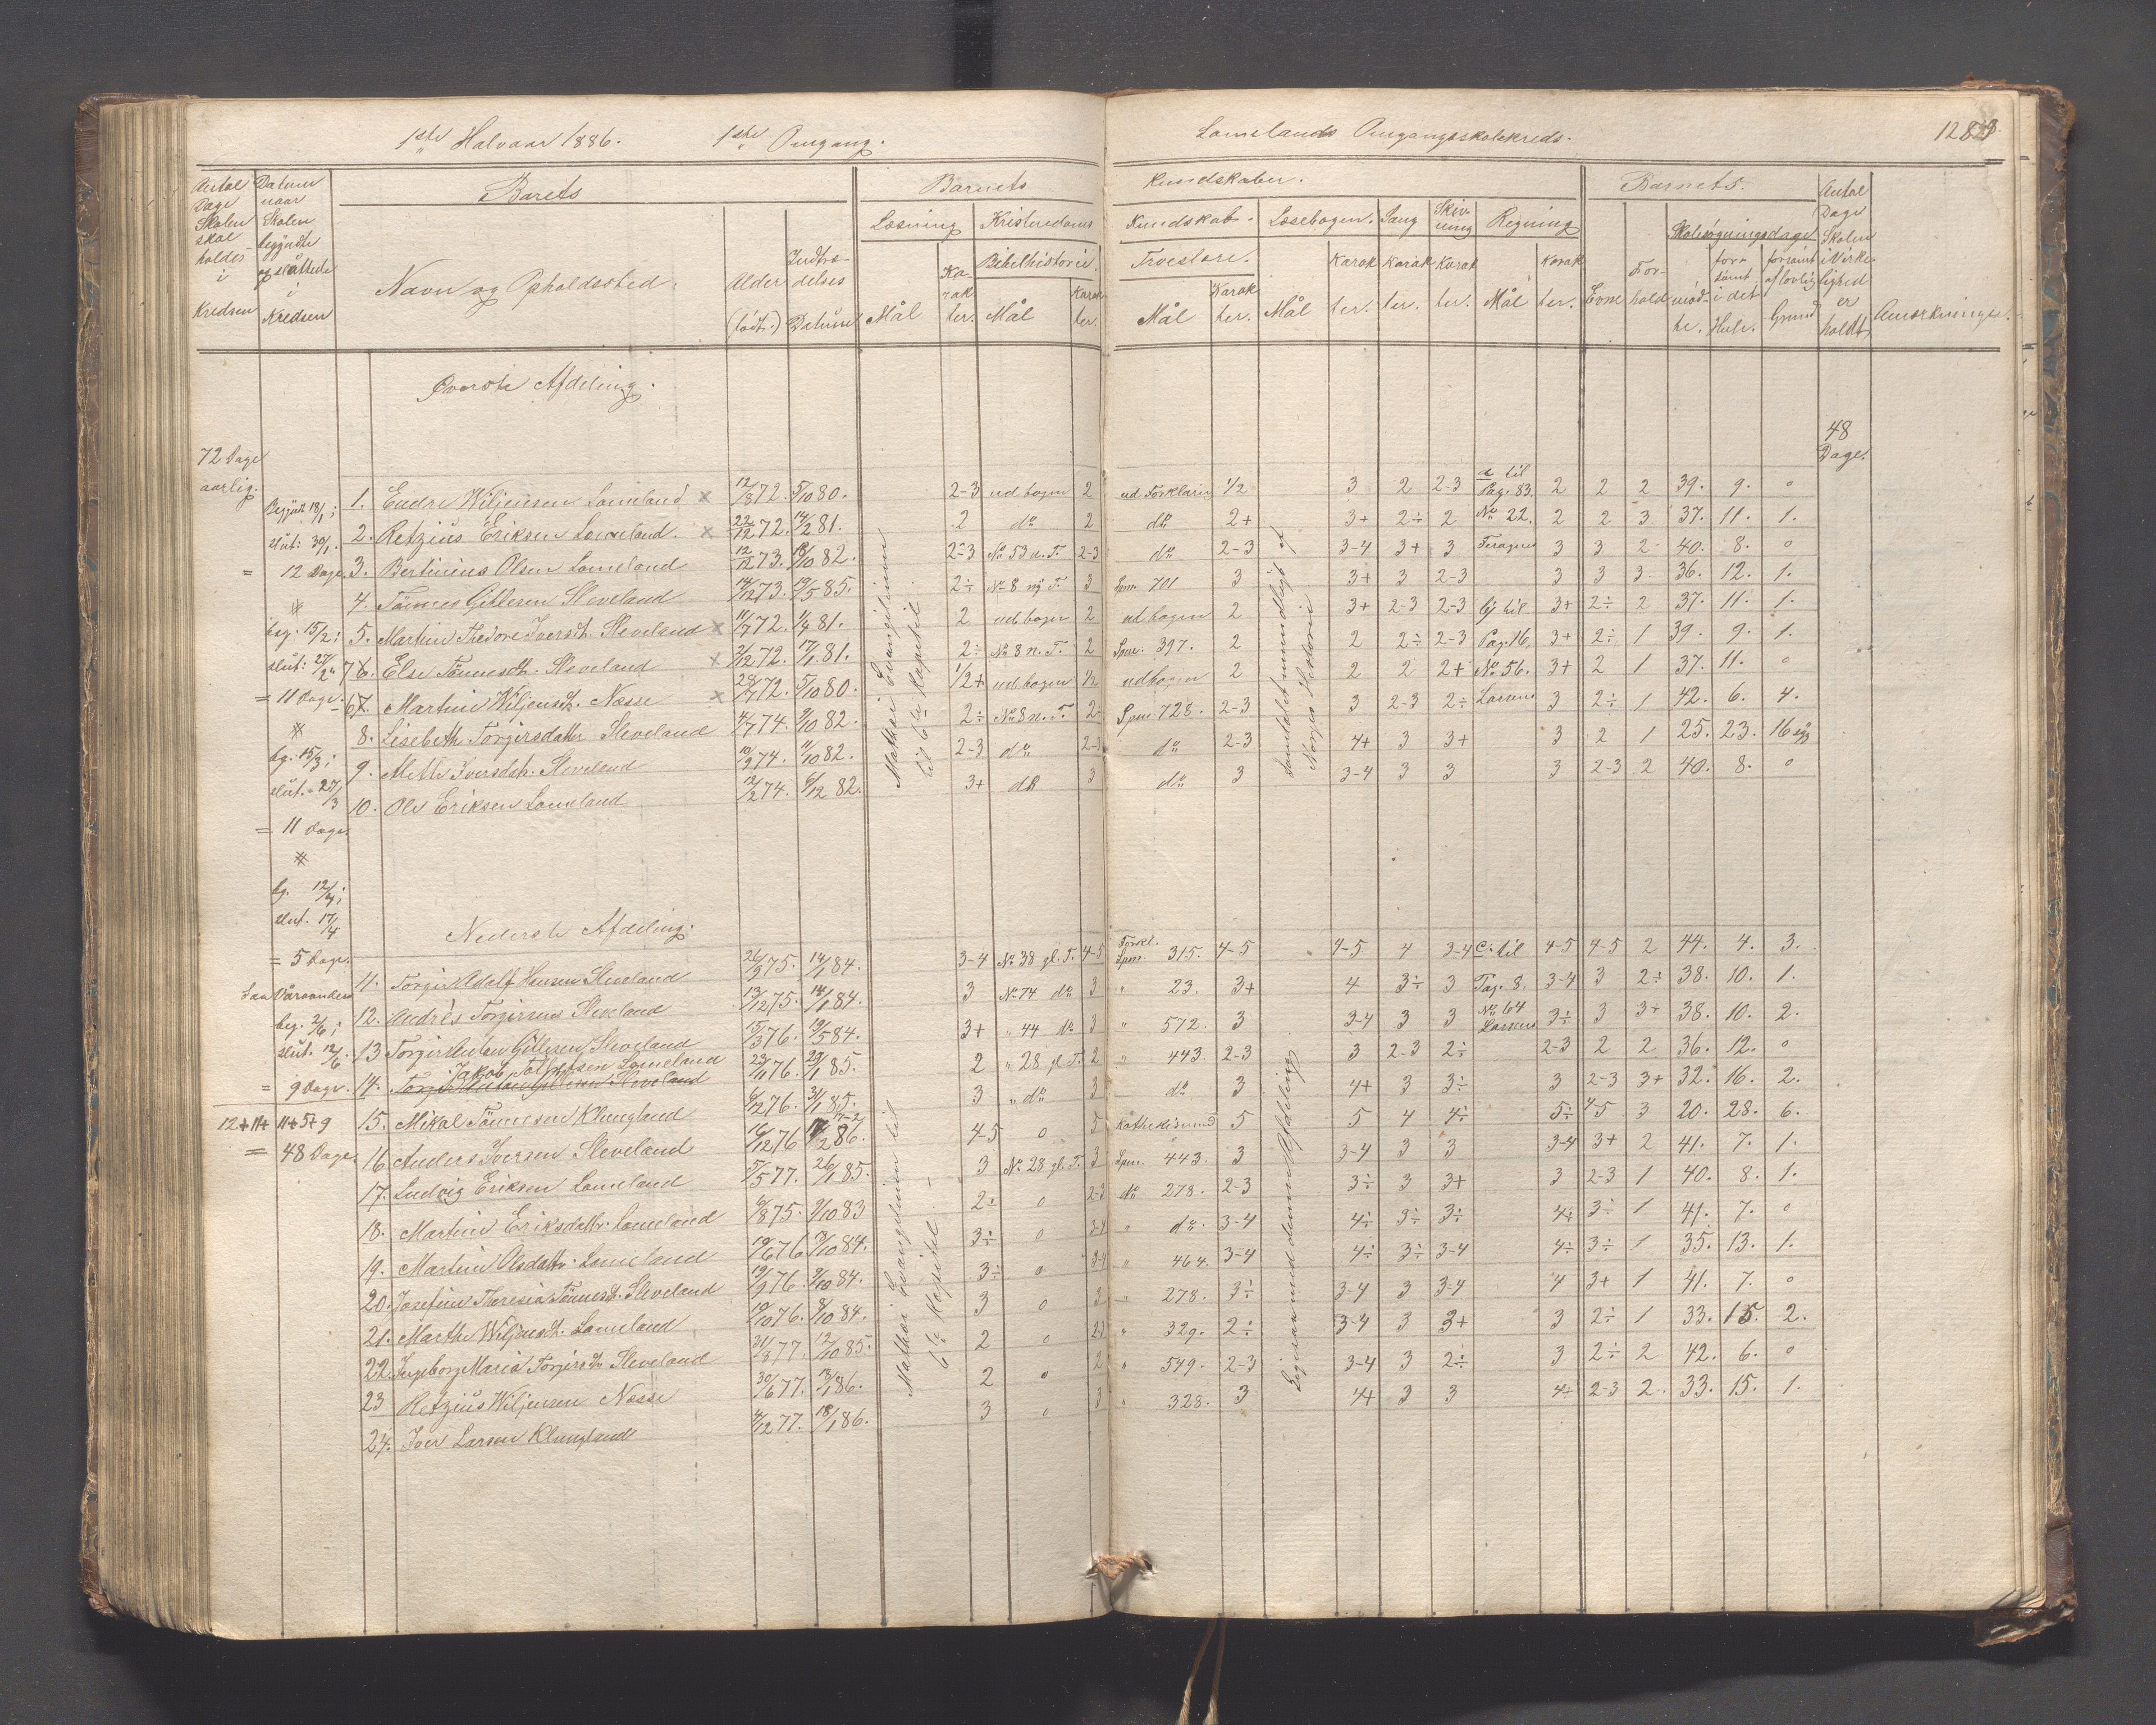 1ste Halvaar 1886. 1ste Omgang.
Lomelands Omgangsskolekreds. 128
Antal Dage Skolen skal holdes i Kredsen
Datum naar Skolen begyndte og sluttede i Kredsen
Barets
Navn og Opholdssted.
Alder (født.)
Indtræ- delses Datum
Barnets Kundskaber.
Læsning
Mål
Ka- rak ter.
Kristendoms Kundskab.
Bibelhistorie.
Mål
Karak ter.
Troeslære.
Mål
Karak ter.
Læsebogen.
Mål
Karak ter.
Sang
Karak ter.
Skriv- ning
Karak ter.
Regning
Mål
Karak ter.
Barnets.
Evne
For- hold
Skolesøgningsdage
mød- te.
for- sømt i det Hele.
forsømt af lovlig Grund
Antal Dage Skolen i Virke- lighed er holdt,
Anmærkninger.
Øverste Afdeling.
72 Dage aarlig.
48 Dage.
Begyndt 18/1;
slut: 30/1.
= 12 Dage.
beg: 15/2;
slut: 27/2
= 11 Dage.
bg. 15/3;
slut. 27/3
= 11 Dage.
bg. 12/4;
slut. 17/4
= 5 Dage.
beg. 2/6;
slut. 12/6.
= 9 Dage.
12+11+11+5+9
= 48 Dage.
1. Endre Wiljensen Lomeland x 12/8 72. 5/10 80. 2-3 ud bogen 2 ud Forklarin 1/2 3 2 2-3 a til Pag. 83. 2 2 2 39. 9. 0
2. Retzius Eriksen Lomeland. x 22/12 72. 14/2 81. 2 do 2 do 2+ 3+ 2÷ 2 No 22. 2 2 3 37. 11. 1.
3. Bertinius Olsen Lomeland 12/12 73. 18/10 82. 2-3 No 53 n. T. 2-3 do 2-3 3-4 3+ 3 3 3 2- 40. 8. 0
4. Tönnes Gitlesen Sleveland 14/12 73. 19/5 85. 2÷ No 8 ny T. 3 Spm. 701 3 3+ 3 2-3 3 3 3. 36. 12. 1.
5. Martine Thedore Iversdt. Sleveland x 11/7 72. 1/4 81. 2 ud bogen 2 ud bogen 2 3+ 2-3 2-3 til 3+ 2÷ 2 37. 11. 1.
7 6. Else Tönnesdt. Sleveland x 2/12 72. 17/1 81. 2÷ No 8 n. T. 2 Spm. 397. 2 2 2÷ 2-3 Pag. 16, 3+ 2÷ 1 39. 9. 1.
6 7. Martine Wiljensdt. Næsse x 28/7 72. 5/10 80. 1/2+ ud bogen 1/2 ud bogen 2 2 2 2+ No 56. 3+ 2 1 37. 11. 0
8. Lisebeth Torgirsdatter Sleveland 4/7 74. 9/10 82. 2÷ No 8 n. T. 2- Spm 728. 2-3 3 2-3 2÷ Larsens 3 2÷ 1 42. 6. 4.
9. Mette Iversdtr. Sleveland 10/9 74. 11/10 82. 2-3 do 2-3 do 2-3 4+ 3 3+ 3 2 1 25. 23. 16
10. Ole Eriksen Lomeland 12/2 74. 6/12 82. 3+ do 3 do 3 3-4 3 3 3 2-3 2 40. 8. 0
Mathæi Evangelium til 6te Kapitel.
Samtalet mundtligt af Norges Historie
Nederste Afdeling.
11. Torgir Adolf Hansen Sleveland 26/9 75. 14/1 84. 3-4 No 38 gl. T. 4-5 Forkl. Spm. 315. 4-5 4-5 4 3-4 c: til 4-5 4-5 2 44. 4. 3.
12. Andrès Torgirsen Sleveland 13/12 75. 14/1 84. 3 No 74 do 3 " 23. 3+ 4 3÷ 3 Pag. 8. 3-4 3 2÷ 38. 10. 1.
13 Torgir Anton Gitlesen Sleveland 15/3 76. 19/5 84. 3+ " 44 do 3 " 572. 3 3-4 3 3 No 64 Larsens 3÷ 3 3+ 38. 10. 2.
14. Torgir Anton Gitlesen Sleveland 23/11 76. 23/1 85. 2 " 28 gl. T. 2 " 443. 2-3 3 2-3 2÷ 2-3 2 2 36. 12. 0
15. Mikal Tönnesen Klungland 6/12 76. 3/1 85. 3 " do 3 do 3 4+ 3 3÷ 3 2-3 3+ 32. 16. 2.
16 Anders Iversen Sleveland 16/12 76 86. 4-5 0 5 Kathekismus 5 5 4 4÷ 5÷ 4-5 3 20. 28. 6.
17. Ludvig Eriksen Lomeland 5/5 77. 26/1 85. 3 No 28 gl. T. 3 Spm. 443. 3 3-4 3 3 3-4 3+ 2 41. 7. 1.
18. Martine Eriksdatter Lomeland 6/8 75. 9/10 83 2÷ 0 2-3 do 278. 2-3 3÷ 3 3+ 3 2-3 1 40. 8. 1.
19. Martine Olsdatter Lomeland 19/6 76 13/10 84. 3÷ 0 3-4 " do. 3-4 4÷ 3÷ 3÷ 4÷ 3÷ 1 41. 7. 0
20. Josefine Theresia Tönnesdt. Sleveland 19/9 76. 9/10 84. 3÷ 0 3-4 " 464. 3-4 4÷ 3÷ 3-4 4÷ 3÷ 1 35. 13. 1.
21. Marthe Wiljensdt. Lomeland 10/10 76. 8/10 84. 3 0 3 " 278. 3÷ 3-4 3 3-4 4 3+ 1 41. 7. 0
22. Ingeborg Maria Torgirsdtr Sleveland 31/8 77. 12/10 85. 2 0 2-3 " 329. 2÷ 3-4 3 3+ 3 2÷ 1 33. 15. 2.
23 Retzius Wiljensen Næsse 30/6 77. 13/1 86. 2 0 2 " 549. 2-3 3-4 3 2÷ 3 2÷ 2 42. 6. 0
24. Iver Larsen Klungland 4/12 77. 18/1 86. 3 0 3 " 328. 3 4+ 3 3 4+ 2-3 2. 33. 15. 1.
Mathæi Evangelium til 6te Kapitel.
Ligesaa med denne Afdeling